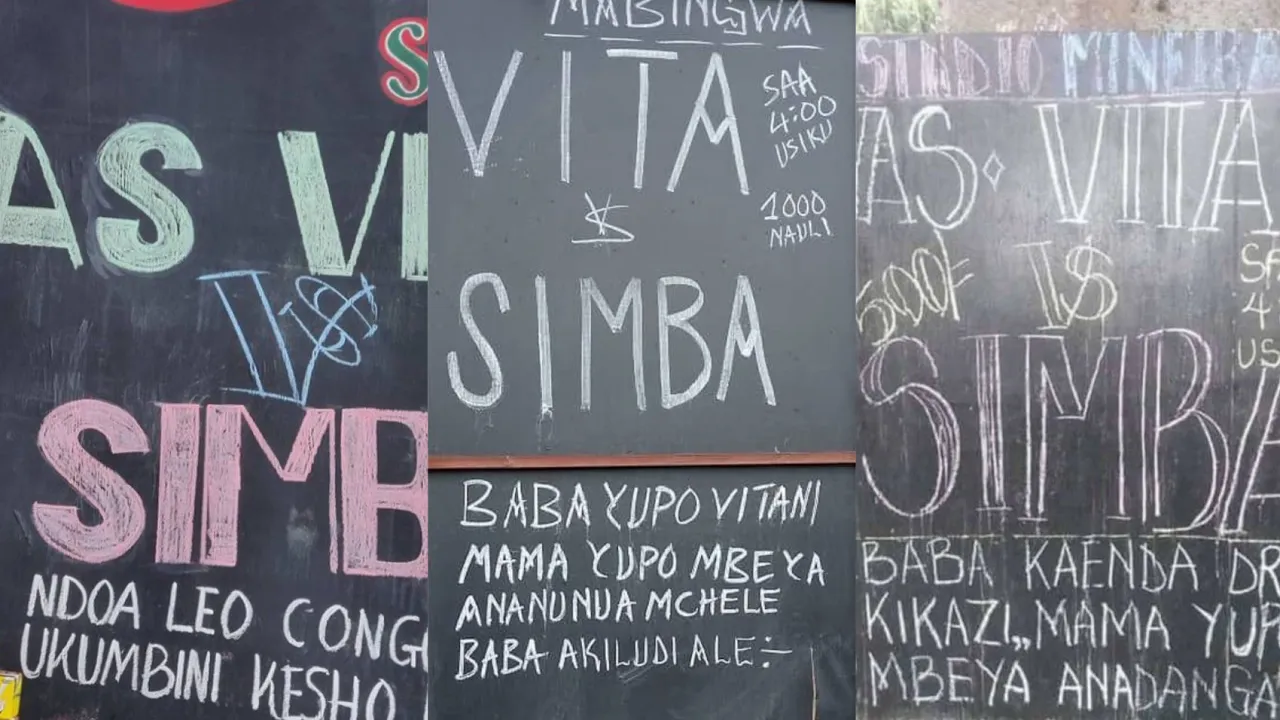 S
AS VI
VS
SIMB
NDOA LEO CONGO
UKUMBINI KESHO
MABINGWA
VITA
SAA
4:00
USIKU
VS
1000
NAULI
SIMBA
BABA YUPO VITANI
MAMA YUPO MBEYA
ANANUNUA MCHELE
BABA AKILUDI ALE:-
AS. VITA
500/=
VS
SA
4
US
SIMBA
BABA KAENDA DR
KIKAZI,,MAMA YUP
MBEYA ANADANGA